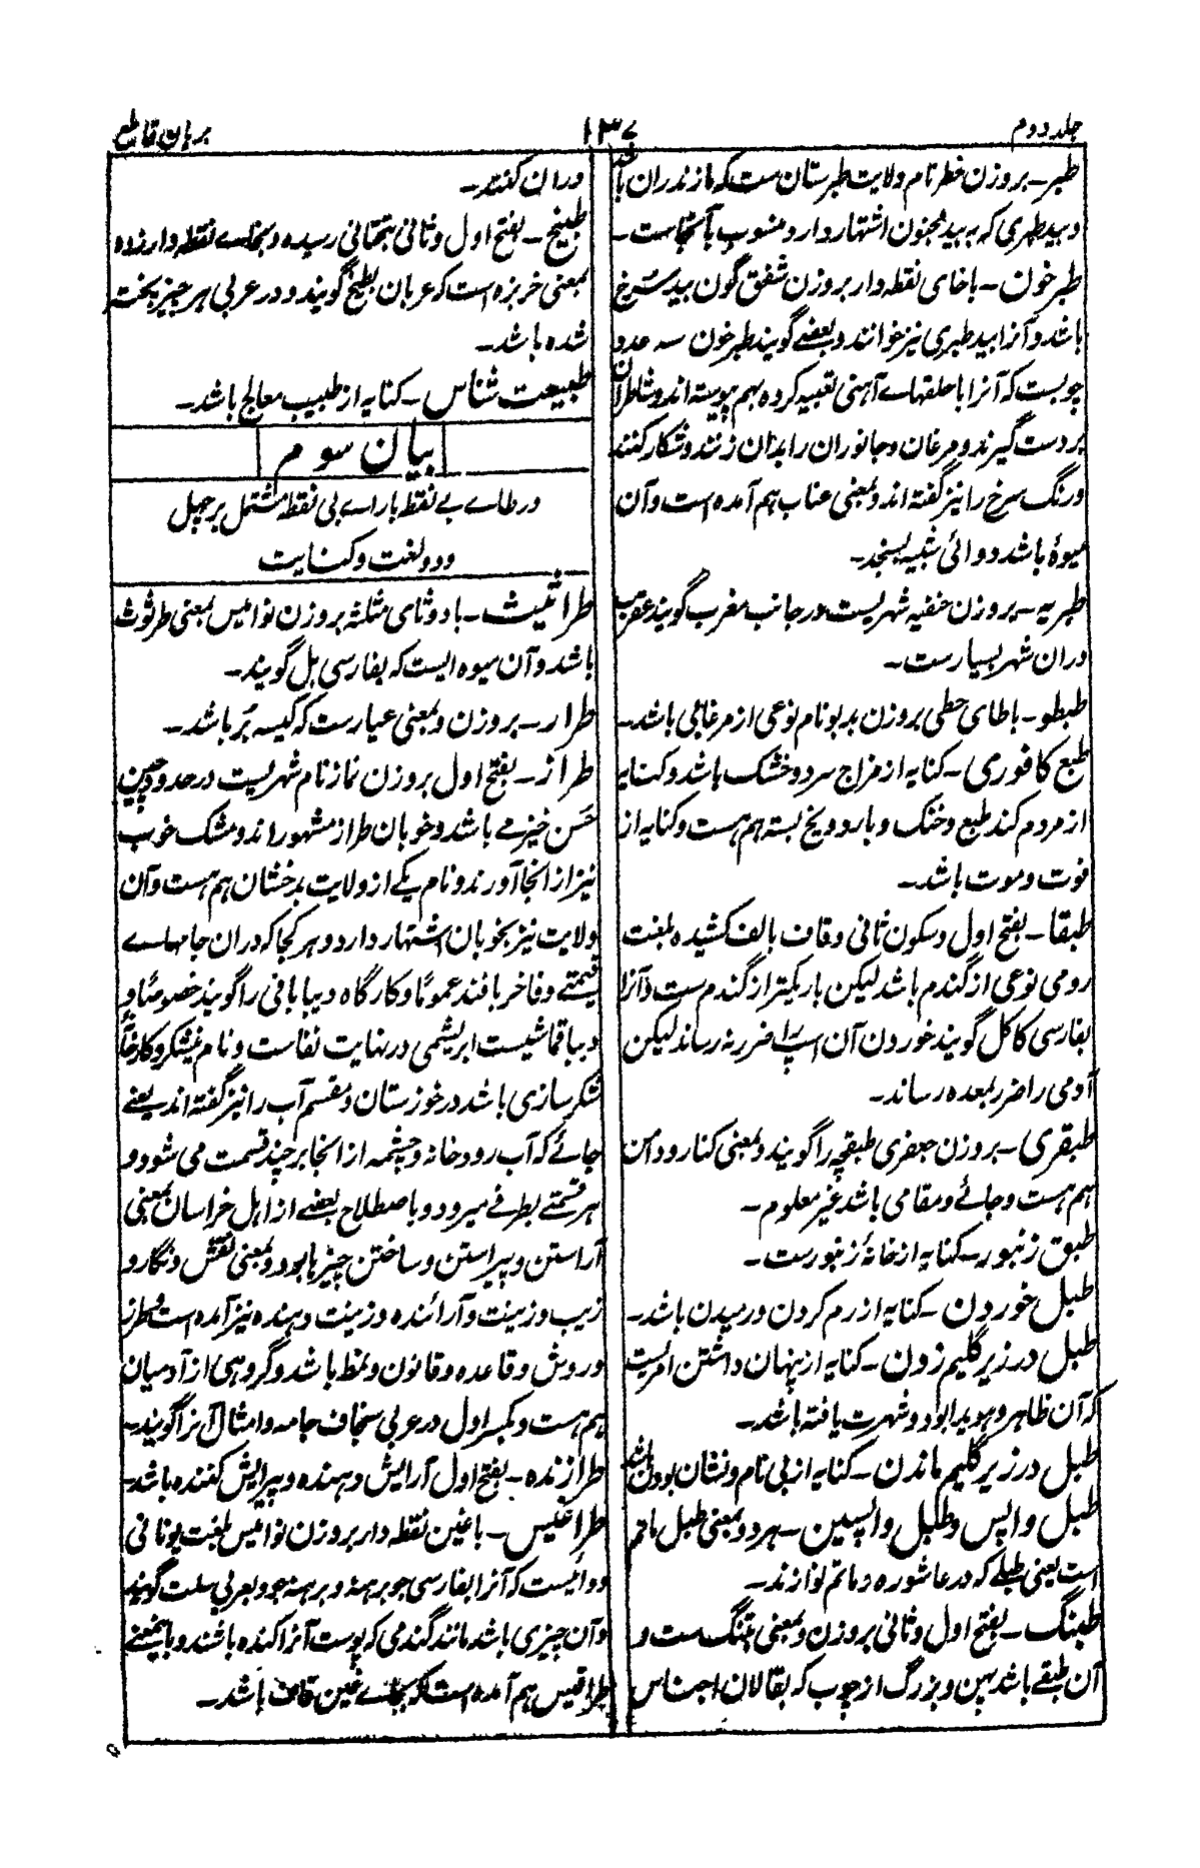 جلد دوم
۱۳۷
برہان قاطع
طبر۔ بروزن خطر نام ولایت طبرستان ست کہ مازندران باشد
و بید طبری کہ بہ بید مجنون اشتہار دارد منسوب بآنجاست۔
طبرخون۔ باخای نقطہ دار بروزن شفق گون بید سرخ
باشد و آنرا بید طبری نیز خوانند و بعضے گویند طبرخون سہ عدد
چوبست کہ آنرا با حلقہاے آہنی تعبیہ کردہ بہم پیوستہ اند و شاطران
بر دست گیرند و مرغان و جانوران را بدان زنند و شکار کنند
و رنگ سرخ را نیز گفتہ اند و بمعنی عناب ہم آمدہ است و آن
میوۂ باشد دوائی شبیہ بسنجد۔
طبریہ۔ بروزن حنفیہ شہریست در جانب مغرب گویند عقرب
دران شہر بسیارست۔
طبطو۔ باطای حطی بروزن بدبو نام نوعی از مرغابی باشد۔
طبع کافوری۔ کنایہ از مزاج سرد و خشک باشد و کنایہ
از مردم کند طبع و خنک و بارد و یخ بستہ ہم ہست و کنایہ از
فوت و موت باشد۔
طبقا۔ بفتح اول و سکون ثانی و قاف بالف کشیدہ بلغت
رومی نوعی از گندم باشد لیکن باریکتر از گندم ست و آنرا
بفارسی کاکل گویند خوردن آن اسپ را ضرر نہ رساند لیکن
آدمی را ضرر بمعدہ رساند۔
طبقری۔ بروزن جعفری طبقچہ را گویند و بمعنی کنار و دامن
ہم ہست و جائے و مقامی باشد غیر معلوم۔
طبق زنبور۔ کنایہ از خانۂ زنبورست۔
طبل خوردن۔ کنایہ از رم کردن و رمیدن باشد۔
طبل در زیر گلیم زدن۔ کنایہ از پنہان داشتن امریست
کہ آن ظاہر و ہویدا بود و شہرت یافتہ باشد۔
طبل در زیر گلیم ماندن۔ کنایہ از بی نام و نشان بودن باشد
طبل واپس و طبل واپسین۔ ہر دو بمعنی طبل ماتم
است یعنی طبلے کہ در عاشورہ و ماتم نوازند۔
طبنگ۔ بفتح اول و ثانی بروزن و بمعنی تبنگ ست و
آن طبقے باشد پہن و بزرگ از چوب کہ بقالان اجناس
دران کنند۔
طبیخ۔ بفتح اول و ثانی بتحتانی رسیدہ و بخاے نقطہ دار زدہ
بمعنی خربزہ است کہ عربان بطیخ گویند و در عربی ہر چیز پختہ
شدہ باشد۔
طبیعت شناس۔ کنایہ از طبیب معالج باشد۔
بیان سوم
در طاے بے نقط باراے بی نقط مشتمل بر چہل
و دو لغت و کنایت
طراثیث۔ با دو ثای مثلثہ بروزن نوامیس بمعنی طرثوث
باشد و آن میوہ ایست کہ بفارسی بل گویند۔
طرار۔ بروزن و بمعنی عیارست کہ کیسہ بُر باشد۔
طراز۔ بفتح اول بروزن نماز نام شہریست در حدود چین
حسن خیز مے باشد و خوبان طراز مشہور اند و مشک خوب
نیز از انجا آورند و نام یکے از ولایت بدخشان ہم ہست و آن
ولایت نیز بخوبان اشتہار دارد و ہر کجا کہ دران جامہاے
قیمتے و فاخر بافند عموماً و کارگاہ دیبا بافی را گویند خصوصاً و
دیبا قماشیست ابریشمی در نہایت نفاست و نام نیشکر و کارخانہ
شکر سازی باشد در خوزستان و مقسم آب را نیز گفتہ اند یعنے
جائے کہ آب رودخانہ و چشمہ از انجا بر چند قسمت می شود و
ہر قسمتے بطرفے میرود و باصطلاح بعضے از اہل خراسان بمعنی
آراستن و پیراستن و ساختن چیزہا بود و بمعنی نقش و نگار و
زیب و زینت و آرائندہ و زینت دہندہ نیز آمدہ است و طرز
و روش و قاعدہ و قانون و نمط باشد و گروہی از آدمیان
ہم ہست و بکسر اول در عربی سجاف جامہ و امثال آنرا گویند۔
طرازندہ۔ بفتح اول آرایش دہندہ و پیرایش کنندہ باشد۔
طراغیس۔ باغین نقطہ دار بروزن نوامیس بلغت یونانی
دوائیست کہ آنرا بفارسی جو برہنہ و برہنہ جو و بعربی سلت گویند
و آن چیزی باشد مانند گندمی کہ پوست آنرا کندہ باشند و باینمعنے
طراقیس ہم آمدہ است کہ بجاے غین قاف باشد۔